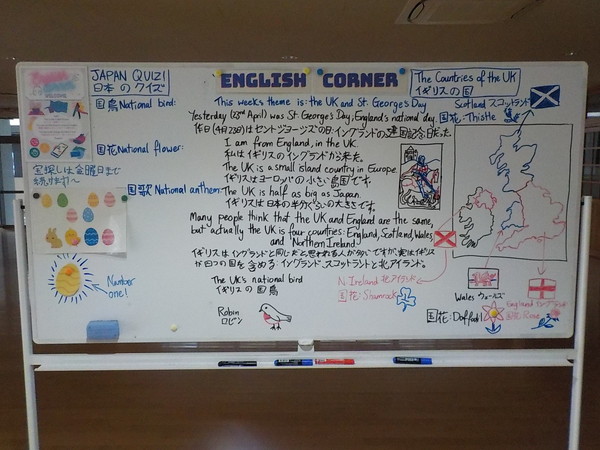 JAPAN QUIZ!
日本のクイズ
国鳥 National bird:
国花 National flower:
宝探しは金曜日まで
国歌 National anthem:
Number one!
ENGLISH CORNER
This week's theme is: the UK and St. George's Day
Yesterday (23rd April) was St. George's Day, England's national day.
昨日(4月23日)はセントジョージズの日:イングランドの建国記念日だった。
I am from England, in the UK.
私はイギリスのイングランドから来た。
The UK is a small island country in Europe.
イギリスはヨーロッパの小さい島国です。
The UK is half as big as Japan.
イギリスは日本の半分ぐらいの大きさです。
Many people think that the UK and England are the same,
but actually the UK is four countries: England, Scotland, Wales,
and Northern Ireland.
イギリスはイングランドと同じだと思われる人が多いですが、実はイギリス
が四つの国を含める:イングランド、スコットランドと北アイランド。
The UK's national bird
イギリスの国鳥
Robin
ロビン
The Countries of the UK
イギリスの国
Scotland スコットランド
国花: Thistle
N. Ireland 北アイランド
国花: Shamrock
Wales ウェールズ
国花: Daffodil
England イングランド
国花 Rose